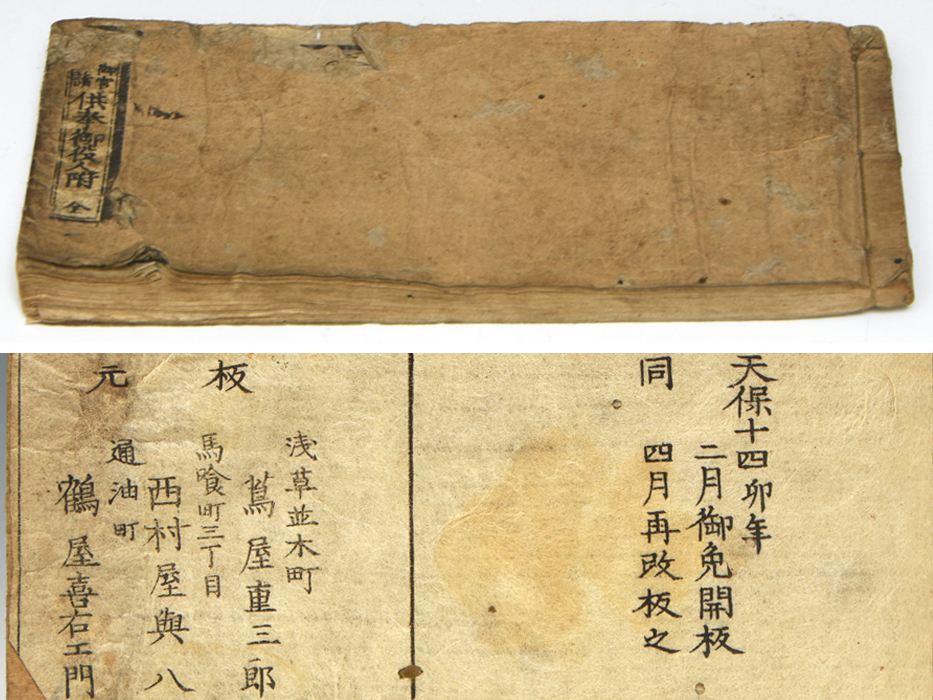 供奉御役人附
全
天保十四卯年
二月御免開板
同
四月再改板之
板
元
浅草並木町
蔦屋重三郎
馬喰町三丁目
西村屋與八
通油町
鶴屋喜右エ門